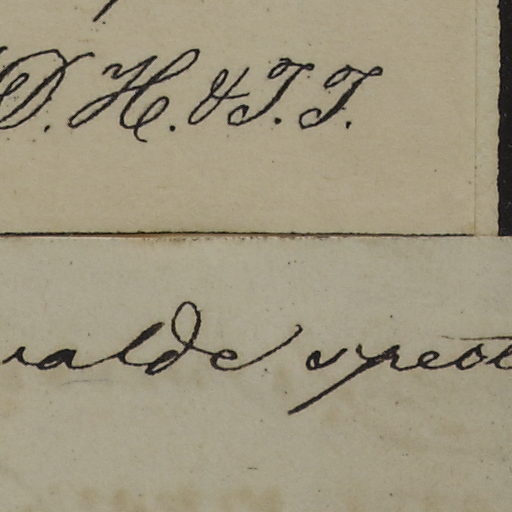 D. H. & T. T.
valde spect